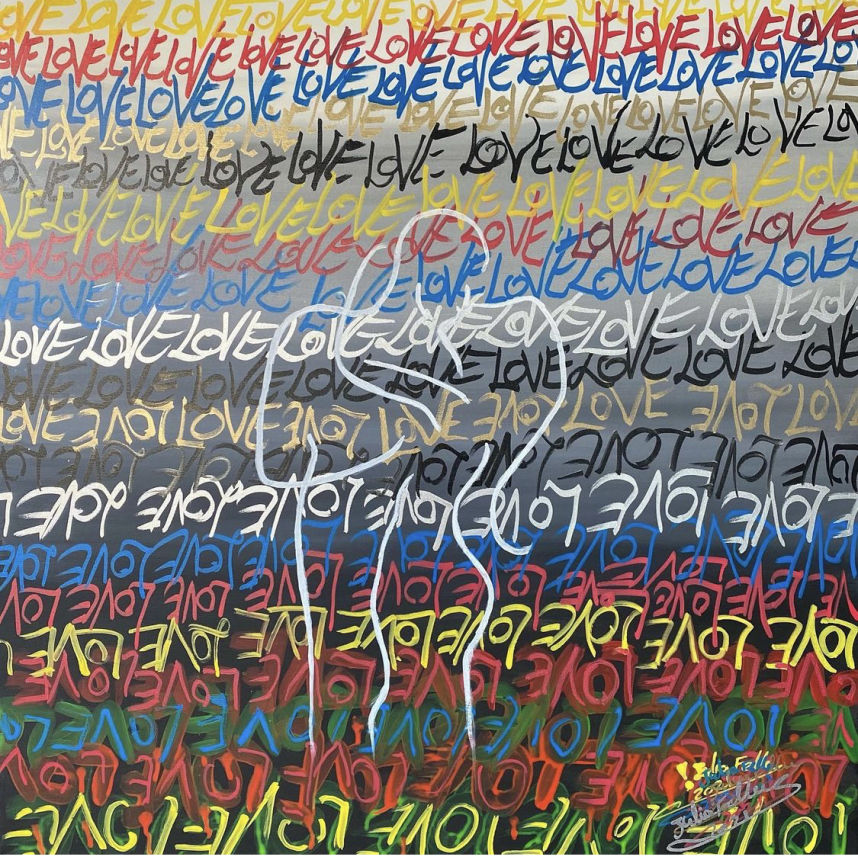 LOVE LOVE LOVE LOVE LOVE LOVE LOVE LOVE LOVE
LOVE LOVE LOVE LOVE LOVE LOVE LOVE LOVE LOVE LOVE
LOVE LOVE LOVE LOVE LOVE LOVE LOVE LOVE LOVE LOVE
LOVE LOVE LOVE LOVE LOVE LOVE LOVE LOVE LOVE
LOVE LOVE LOVE LOVE LOVE LOVE LOVE LOVE LOVE
LOVE LOVE LOVE LOVE LOVE LOVE LOVE LOVE LOVE
LOVE LOVE LOVE LOVE LOVE LOVE LOVE LOVE
LOVE LOVE LOVE LOVE LOVE LOVE LOVE LOVE
LOVE LOVE LOVE LOVE LOVE LOVE LOVE LOVE
LOVE LOVE LOVE LOVE LOVE LOVE LOVE LOVE
LOVE LOVE LOVE LOVE LOVE LOVE LOVE LOVE LOVE
LOVE LOVE LOVE LOVE LOVE LOVE LOVE LOVE
LOVE LOVE LOVE LOVE LOVE LOVE LOVE LOVE
LOVE LOVE LOVE LOVE LOVE LOVE LOVE LOVE
LOVE LOVE LOVE LOVE LOVE LOVE LOVE LOVE
LOVE LOVE LOVE LOVE LOVE LOVE LOVE LOVE
LOVE LOVE LOVE LOVE LOVE LOVE LOVE LOVE
LOVE LOVE LOVE LOVE LOVE LOVE LOVE
LOVE LOVE LOVE LOVE LOVE LOVE LOVE
LOVE LOVE LOVE LOVE LOVE LOVE LOVE